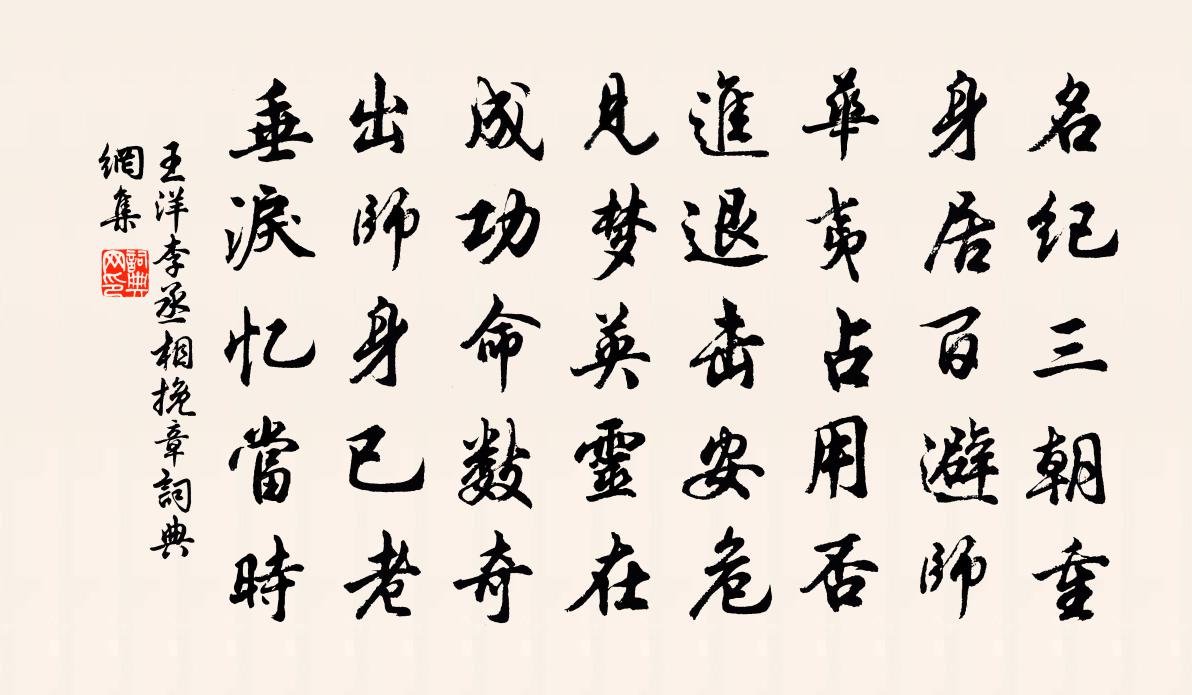 名紀三朝重
身居百避師
華夷占用否
進退击安危
見梦英靈在
成功命數奇
出師身已老
垂淚忆當時
王洋李丞相挽章詞典
網集
詞典
网印